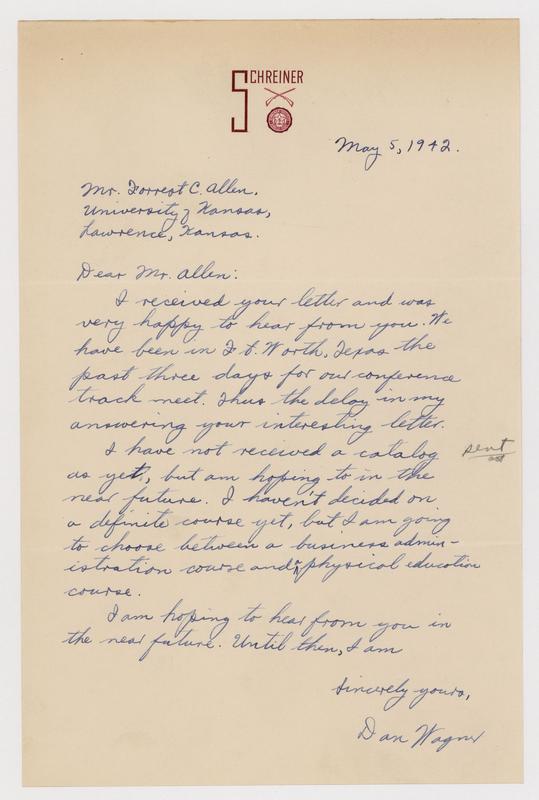 SCHREINER
May 5, 1942.
Mr. Forrest C. Allen,
University of Kansas,
Lawrence, Kansas.
Dear Mr. Allen:
I received your letter and was
very happy to hear from you. We
have been in Ft. Worth, Texas the
past three days for our conference
track meet. Thus the delay in my
answering your interesting letter.
I have not received a catalog
sent
as yet, but am hoping to in the
near future. I haven't decided on
a definite course yet, but I am going
to choose between a business admin-
istration course and a physical education
course.
I am hoping to hear from you in
the near future. Until then, I am
Sincerely yours,
Dan Wagner